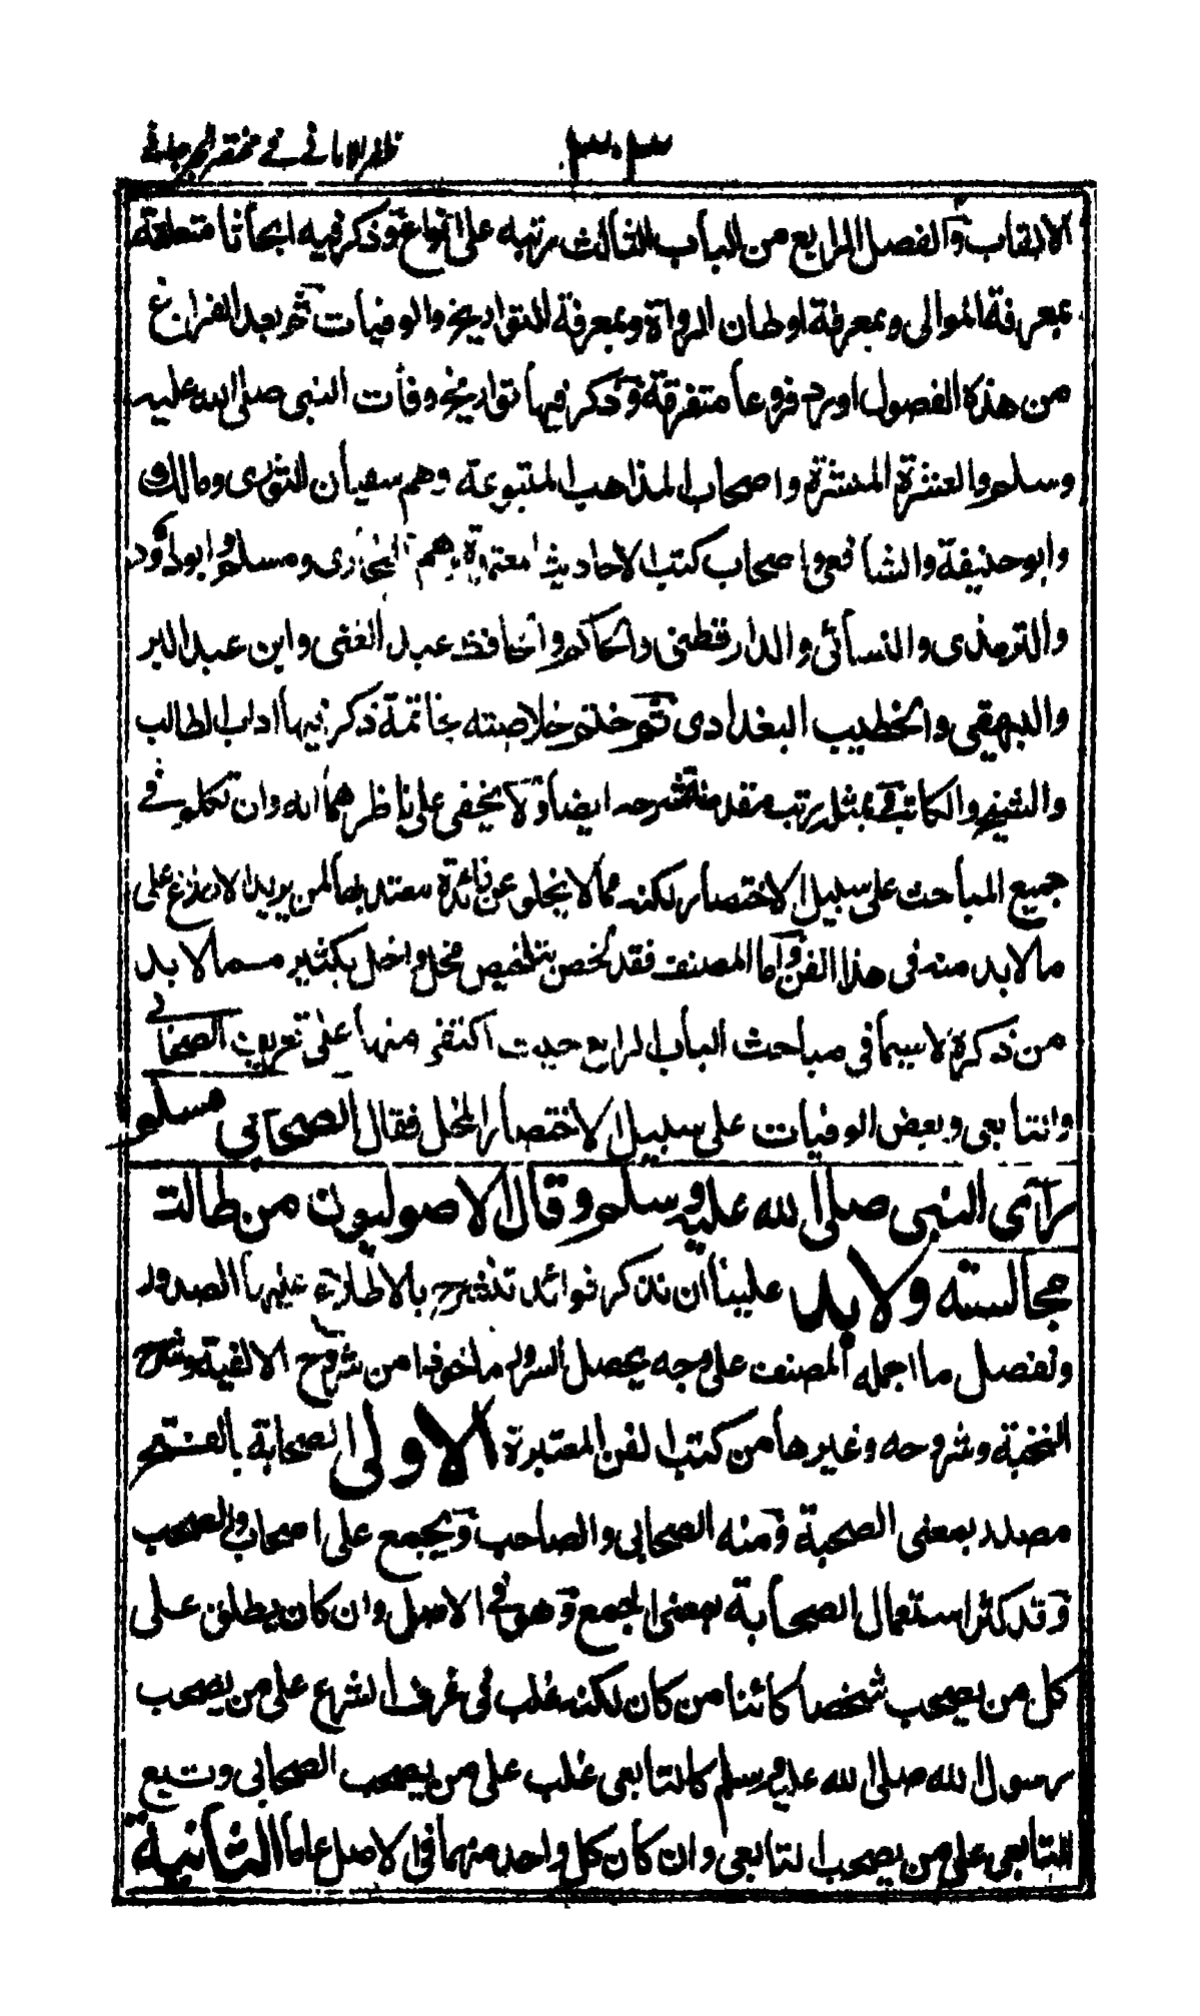 ظفر الامانی فی مختصر الجرجانی ٣٠٣
الالقاب والفصل الرابع من الباب الثالث رتبه على انواع وذكر فيه ابحاثا متعلقة
بمعرفة الموالى وبمعرفة اوطان الرواة وبمعرفة التواريخ والوفيات ثم بعد الفراغ
من هذه الفصول اورد فروعا متفرقة وذكر فيها تواريخ وفات النبى صلى الله عليه
وسلم والعشرة المبشرة واصحاب المذاهب المتبوعة وهم سفيان الثورى ومالك و
وابو حنيفة والشافعى واصحاب كتب الاحاديث المعتمدة وهم البخارى ومسلم وابو داود
والترمذى والنسائى والدارقطنى والحاكم والحافظ عبد الغنى وابن عبد البر
والبيهقى والخطيب البغدادى ثم ختم خلاصته بخاتمة ذكر فيها اداب الطالب
والشيخ والكاتب فى مثل رتب مقدمته شرحه ايضا ولا يخفى على ناظرهما انه وان تكلم فى
جميع المباحث على سبيل الاختصار لكنه مما لا يخلو عن فائدة معتد بها لمن يريد الاطلاع على
ما لا بد منه فى هذا الفن واما المصنف فقد لخص بتلخيص مخل واخل بكثير مما لا بد
من ذكره لاسيما فى مباحث الباب الرابع حيث اكتفى منها على تعريف الصحابى
والتابعى وبعض الوفيات على سبيل الاختصار المخل فقال الصحابى مسلم
رآى النبى صلى الله عليه وسلم وقال الاصوليون من طالت
مجالسته ولا بد علينا ان نذكر فوائد تنشرح بالاطلاع عليها الصدور
ونفصل ما اجمله المصنف على وجه يحصل السرور ماخوذا من شروح الالفية وشرح
النخبة وشروحه وغيرها من كتب الفن المعتبرة الاولى الصحابة بالفتح
مصدر بمعنى الصحبة ومنه الصحابى والصاحب ويجمع على اصحاب والصحب
وقد كثر استعمال الصحابة بمعنى الجمع وهو فى الاصل وان كان يطلق على
كل من يصحب شخصا كائنا من كان لكنه غلب فى عرف الشرع على من يصحب
رسول الله صلى الله عليه وسلم كالتابعى غلب على من يصحب الصحابى وتبع
التابعى على من يصحب التابعى وان كان كل واحد منهما فى الاصل عاما الثانية